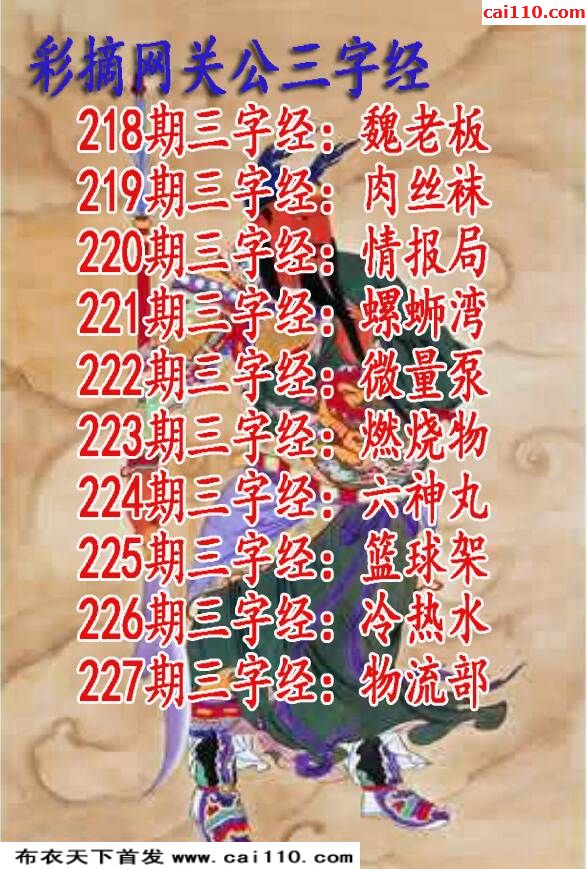 cai110.com
彩摘网关公三字经
218期三字经：魏老板
219期三字经：肉丝袜
220期三字经：情报局
221期三字经：螺蛳湾
222期三字经：微量泵
223期三字经：燃烧物
224期三字经：六神丸
225期三字经：篮球架
226期三字经：冷热水
227期三字经：物流部
布衣天下首发 www.cai110.com